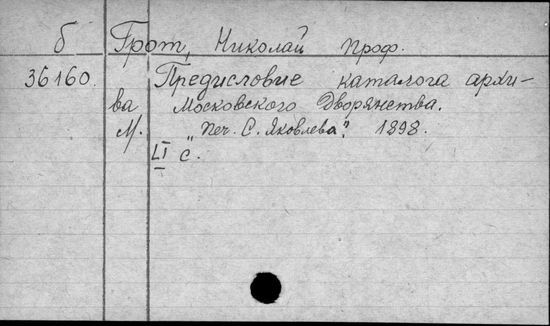 б Грот, Николай проф.
36160. Предисловие каталога архи-
ва Московского Дворянства.
М. "Печ. С. Яковлева". 1898.
LI с.